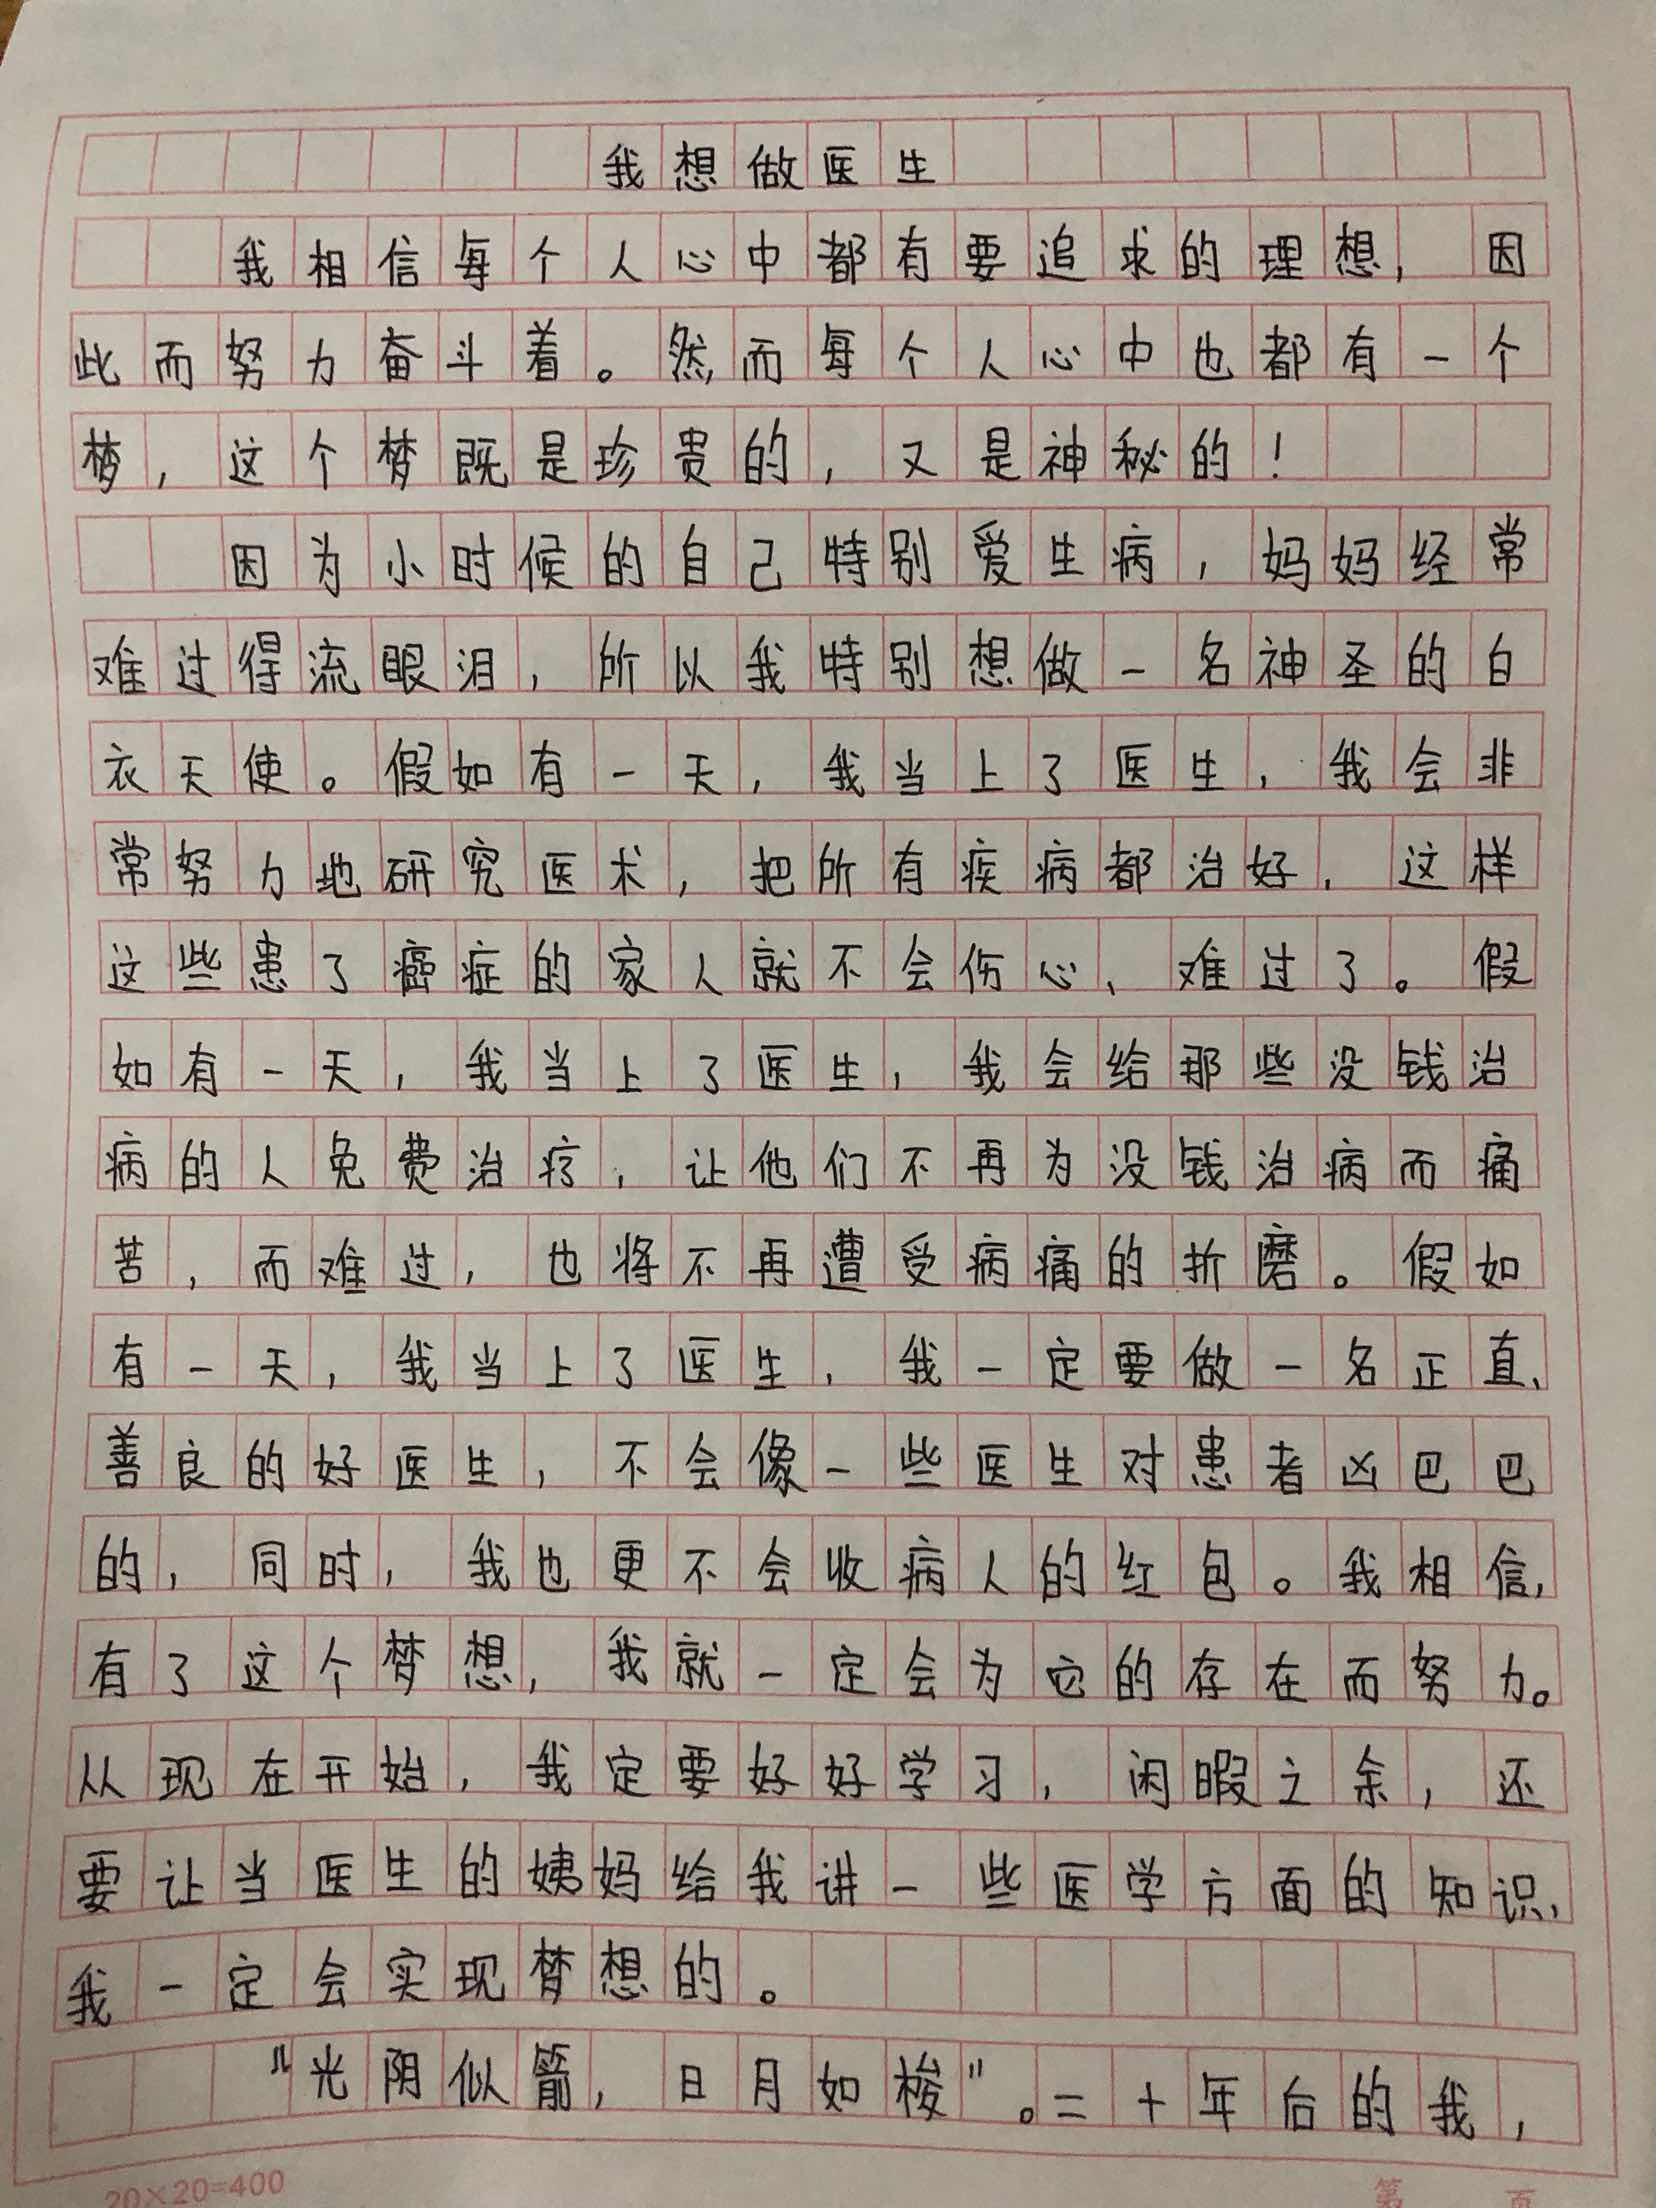 我想做医生
我相信每个人心中都有要追求的理想，因
此而努力奋斗着。然而每个人心中也都有一个
梦，这个梦既是珍贵的，又是神秘的！
因为小时候的自己特别爱生病，妈妈经常
难过得流眼泪，所以我特别想做一名神圣的白
衣天使。假如有一天，我当上了医生，我会非
常努力地研究医术，把所有疾病都治好，这样
这些患了癌症的家人就不会伤心、难过了。假
如有一天，我当上了医生，我会给那些没钱治
病的人免费治疗，让他们不再为没钱治病而痛
苦，而难过，也将不再遭受病痛的折磨。假如
有一天，我当上了医生，我一定要做一名正直、
善良的好医生，不会像一些医生对患者凶巴巴
的，同时，我也更不会收病人的红包。我相信，
有了这个梦想，我就一定会为它的存在而努力。
从现在开始，我定要好好学习，闲暇之余，还
要让当医生的姨妈给我讲一些医学方面的知识，
我一定会实现梦想的。
“光阴似箭，日月如梭”。二十年后的我，
20×20=400
第 页